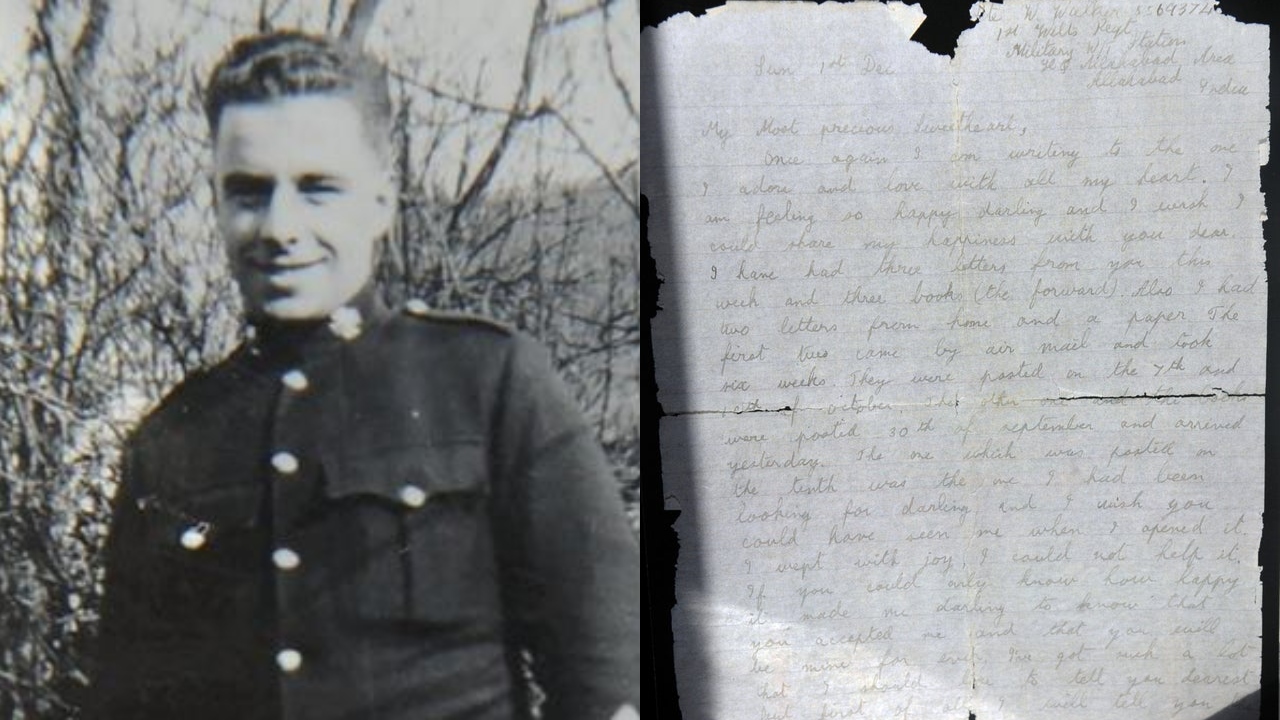 Pte W. Walker 5569374
1st Wilts Regt
Military W/T Station
Allahabad Area
Sun 1st Dec
Allahabad
India
My Most precious Sweetheart,
Once again I am writing to the one
I adore and love with all my heart. I
am feeling so happy darling and I wish I
could share my happiness with you dear.
I have had three letters from you this
week and three books (the forward). Also I had
two letters from home and a paper The
first two came by air mail and took
six weeks. They were posted on the 7th and
10th of October. The other
were posted 30th of september and arrived
yesterday. The one which was posted on
the tenth was the one I had been
looking for darling and I wish you
could have seen me when I opened it.
I wept with joy, I could not help it.
If you could only know how happy
it made me darling to know that
you accepted me and that you will
be mine for ever. I've got such a lot
that I should like to tell you dearest
but first of all I will tell you